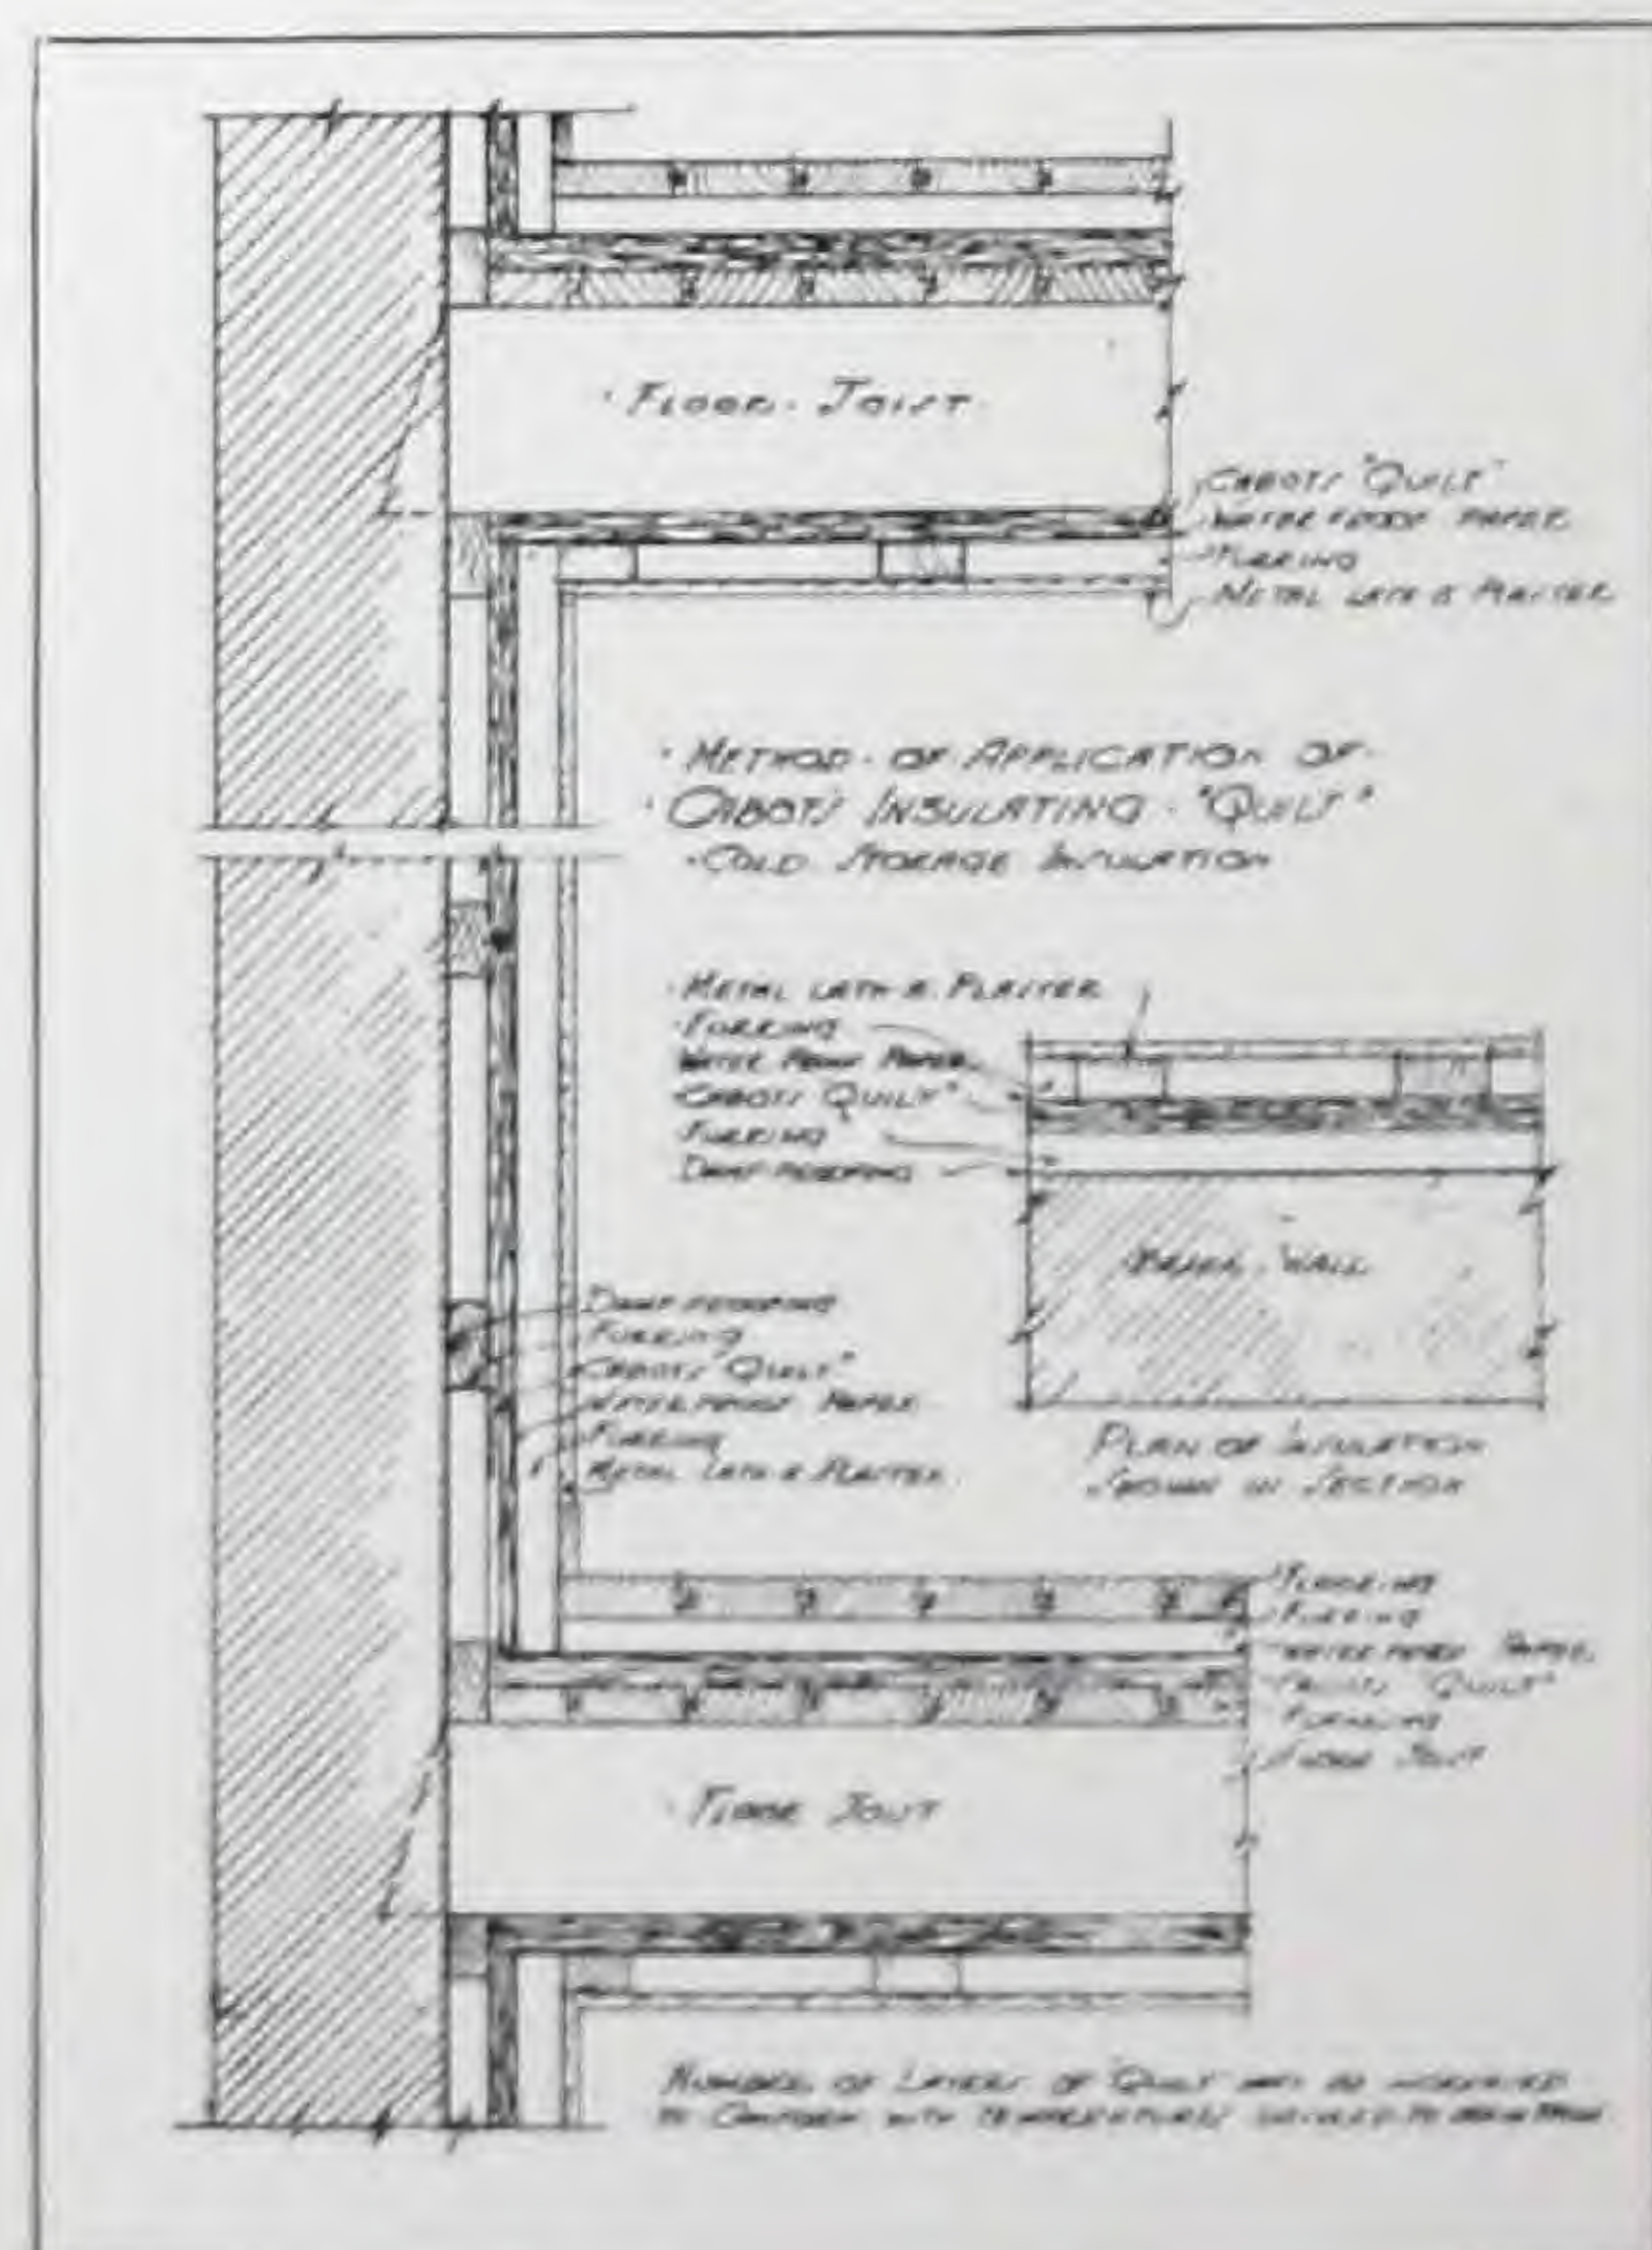 · FLOOR · JOIST ·
CABOT'S "QUILT"
WATER PROOF PAPER
FURRING
METAL LATH & PLASTER
· METHOD · OF APPLICATION OF ·
· CABOT'S INSULATING · "QUILT"
· COLD STORAGE INSULATION
· METAL LATH & PLASTER
· FURRING
WATER PROOF PAPER
CABOT'S QUILT"
FURRING
DAMP-PROOFING
BRICK WALL
PLAN OF INSULATION
SHOWN IN SECTION
DAMP-PROOFING
FURRING
CABOT'S "QUILT"
WATER PROOF PAPER
FURRING
METAL LATH & PLASTER
FLOORING
FURRING
WATER PROOF PAPER
CABOT'S "QUILT"
FLOOR JOIST
· FLOOR JOIST
NUMBER OF LAYERS OF QUILT MAY BE INCREASED
TO CONFORM WITH TEMPERATURES DESIRED TO MAINTAIN